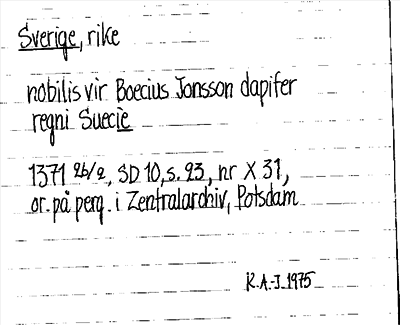 Sverige, rike
nobilis vir Boecius Jonsson dapifer
regni Suecie
1371 26/2, SD 10, s. 23, nr X 31,
or. på perg. i Zentralarchiv, Potsdam
K.A.-J. 1975